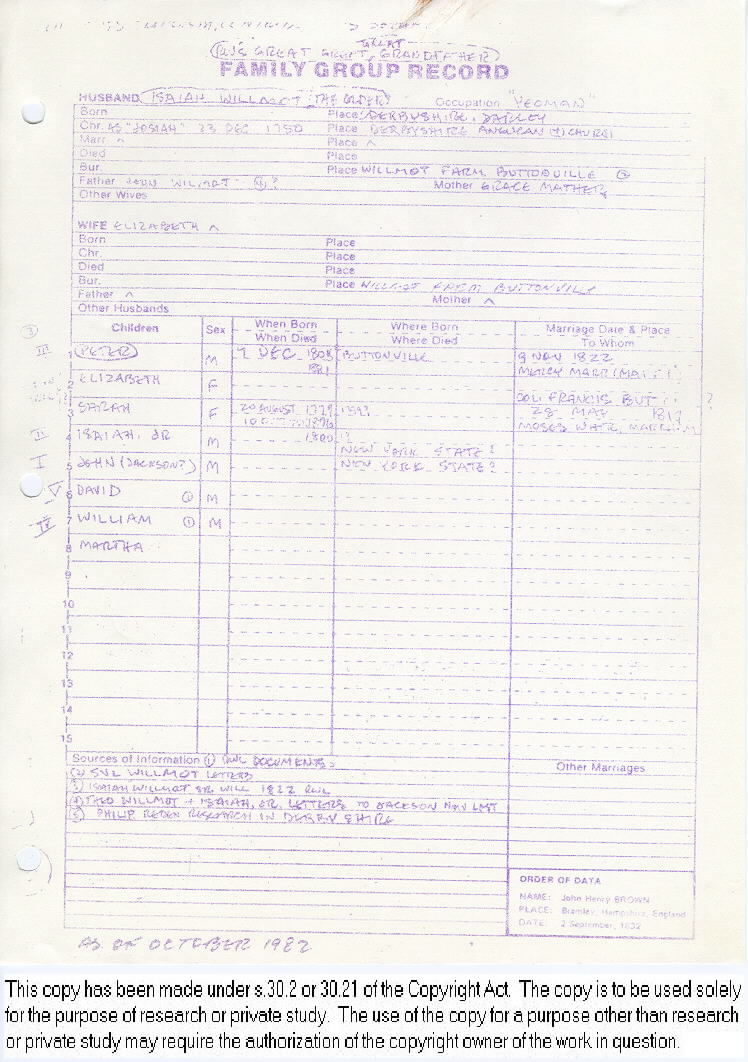 GREAT
(RWL'S GREAT GREAT, GRANDFATHER)
FAMILY GROUP RECORD
HUSBAND ISAIAH WILLMOT (THE ELDER) Occupation "YEOMAN"
Born Place DERBYSHIRE, DARLEY
Chr. AS "JOSIAH" 23 DEC 1750 Place DERBYSHIRE ANGLICAN CHURCH
Marr ^ Place ^
Died Place
Bur. Place WILLMOT FARM BUTTONVILLE
Father JOHN WILMOT ? Mother GRACE MATHER
Other Wives
WIFE ELIZABETH ^
Born Place
Chr. Place
Died Place
Bur. Place WILLMOT FARM BUTTONVILLE
Father ^ Mother ^
Other Husbands
Children Sex When Born Where Born Marriage Date & Place
When Died Where Died To Whom
III 1 (PETER) M 7 DEC 1808 BUTTONVILLE 9 NOV 1822
1881 MERCY MARR
2 ELIZABETH F
COL. FRANCIS BUT ?
3 SARAH F 20 AUGUST 1779 28 MAY
MOSES
II 4 ISAIAH, JR M 1800 ?
NEW YORK STATE?
I 5 JOHN (JACKSON?) M NEW YORK STATE?
V 6 DAVID ① M
IV 7 WILLIAM ① M
8 MARTHA
9
10
11
12
13
14
15
Sources of Information ① RWL DOCUMENTS Other Marriages
(2) SVL WILLMOT LETTERS
(3) ISAIAH WILLMOT SR WILL 1822 RWL
(4) THEO WILLMOT + ISAIAH, JR. LETTERS TO JACKSON NOW LOST
(5) PHILIP REDEN RESEARCH IN DERBYSHIRE
ORDER OF DATA
NAME: John Henry BROWN
PLACE: Bramley, Hampshire, England
DATE: 2 September, 1832
AS OF OCTOBER 1982
This copy has been made under s.30.2 or 30.21 of the Copyright Act. The copy is to be used solely
for the purpose of research or private study. The use of the copy for a purpose other than research
or private study may require the authorization of the copyright owner of the work in question.